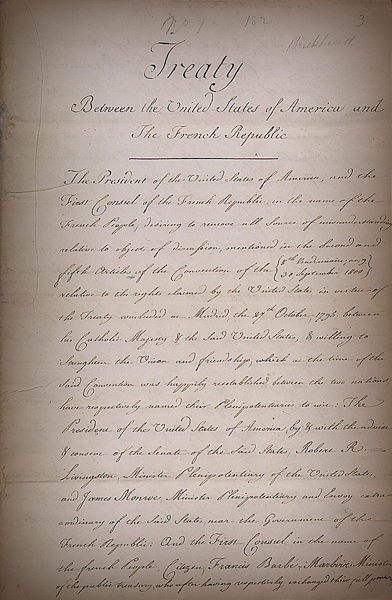 182
3
Treaty
Between the United States of America and
The French Republic
The President of the United States of America, and the
First Consul of the French Republic, in the name of the
French People, desiring to remove all Source of misunderstanding
relative to objects of discussion, mentioned in the Second and
fifth Articles of the Convention of the { 8th Vendemiaire, an 9
30 September 1800 }
relative to the rights claimed by the United States in virtue of
the Treaty concluded at Madrid the 27th October, 1795, between
his Catholic Majesty & the Said United States, & willing to
Strengthen the Union and friendship, which at the time of the
Said Convention was happily reestablished between the two nations,
have respectively named their Plenipotentiaries to wit: The
President of the United States of America, by & with the advice
& consent of the Senate of the Said States, Robert R.
Livingston, Minister Plenipotentiary of the United States,
and James Monroe, Minister Plenipotentiary and Envoy extra
ordinary of the Said States, near the Government of the
French Republic: And the First Consul in the name of
the French People, Citizen, Francis Barbé-Marbois Minister
of the public treasury, who after having respectively exchanged their full powers